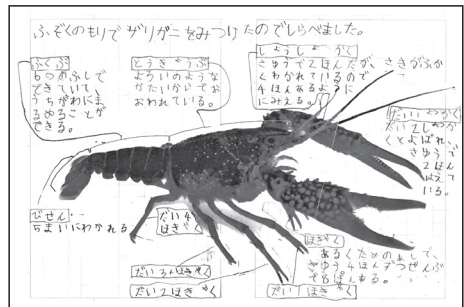 ふぞくのもりでザリガニをみつけたのでしらべました。
ふくぶ
6つのふしで
できていて、
うちがわにま
るめることが
できる。
とうきょうぶ
よろいのような
かたいからでお
おわれている。
しょうしょっかく
さゆうで2ほんだが、さきがふか
くわかれているので
4ほんあるように
にみえる。
だい2しょっか
くとよばれ、
さゆうで
2ほん
はえて
いる。
びせん
5まいにわかれる
だい4
ほきゃく
だい3ほきゃく
だい2ほきゃく
だい1ほきゃく
ほきゃく
あるくためのあしで、
さゆう4ほんずつぜんぶ
で8ほんある。